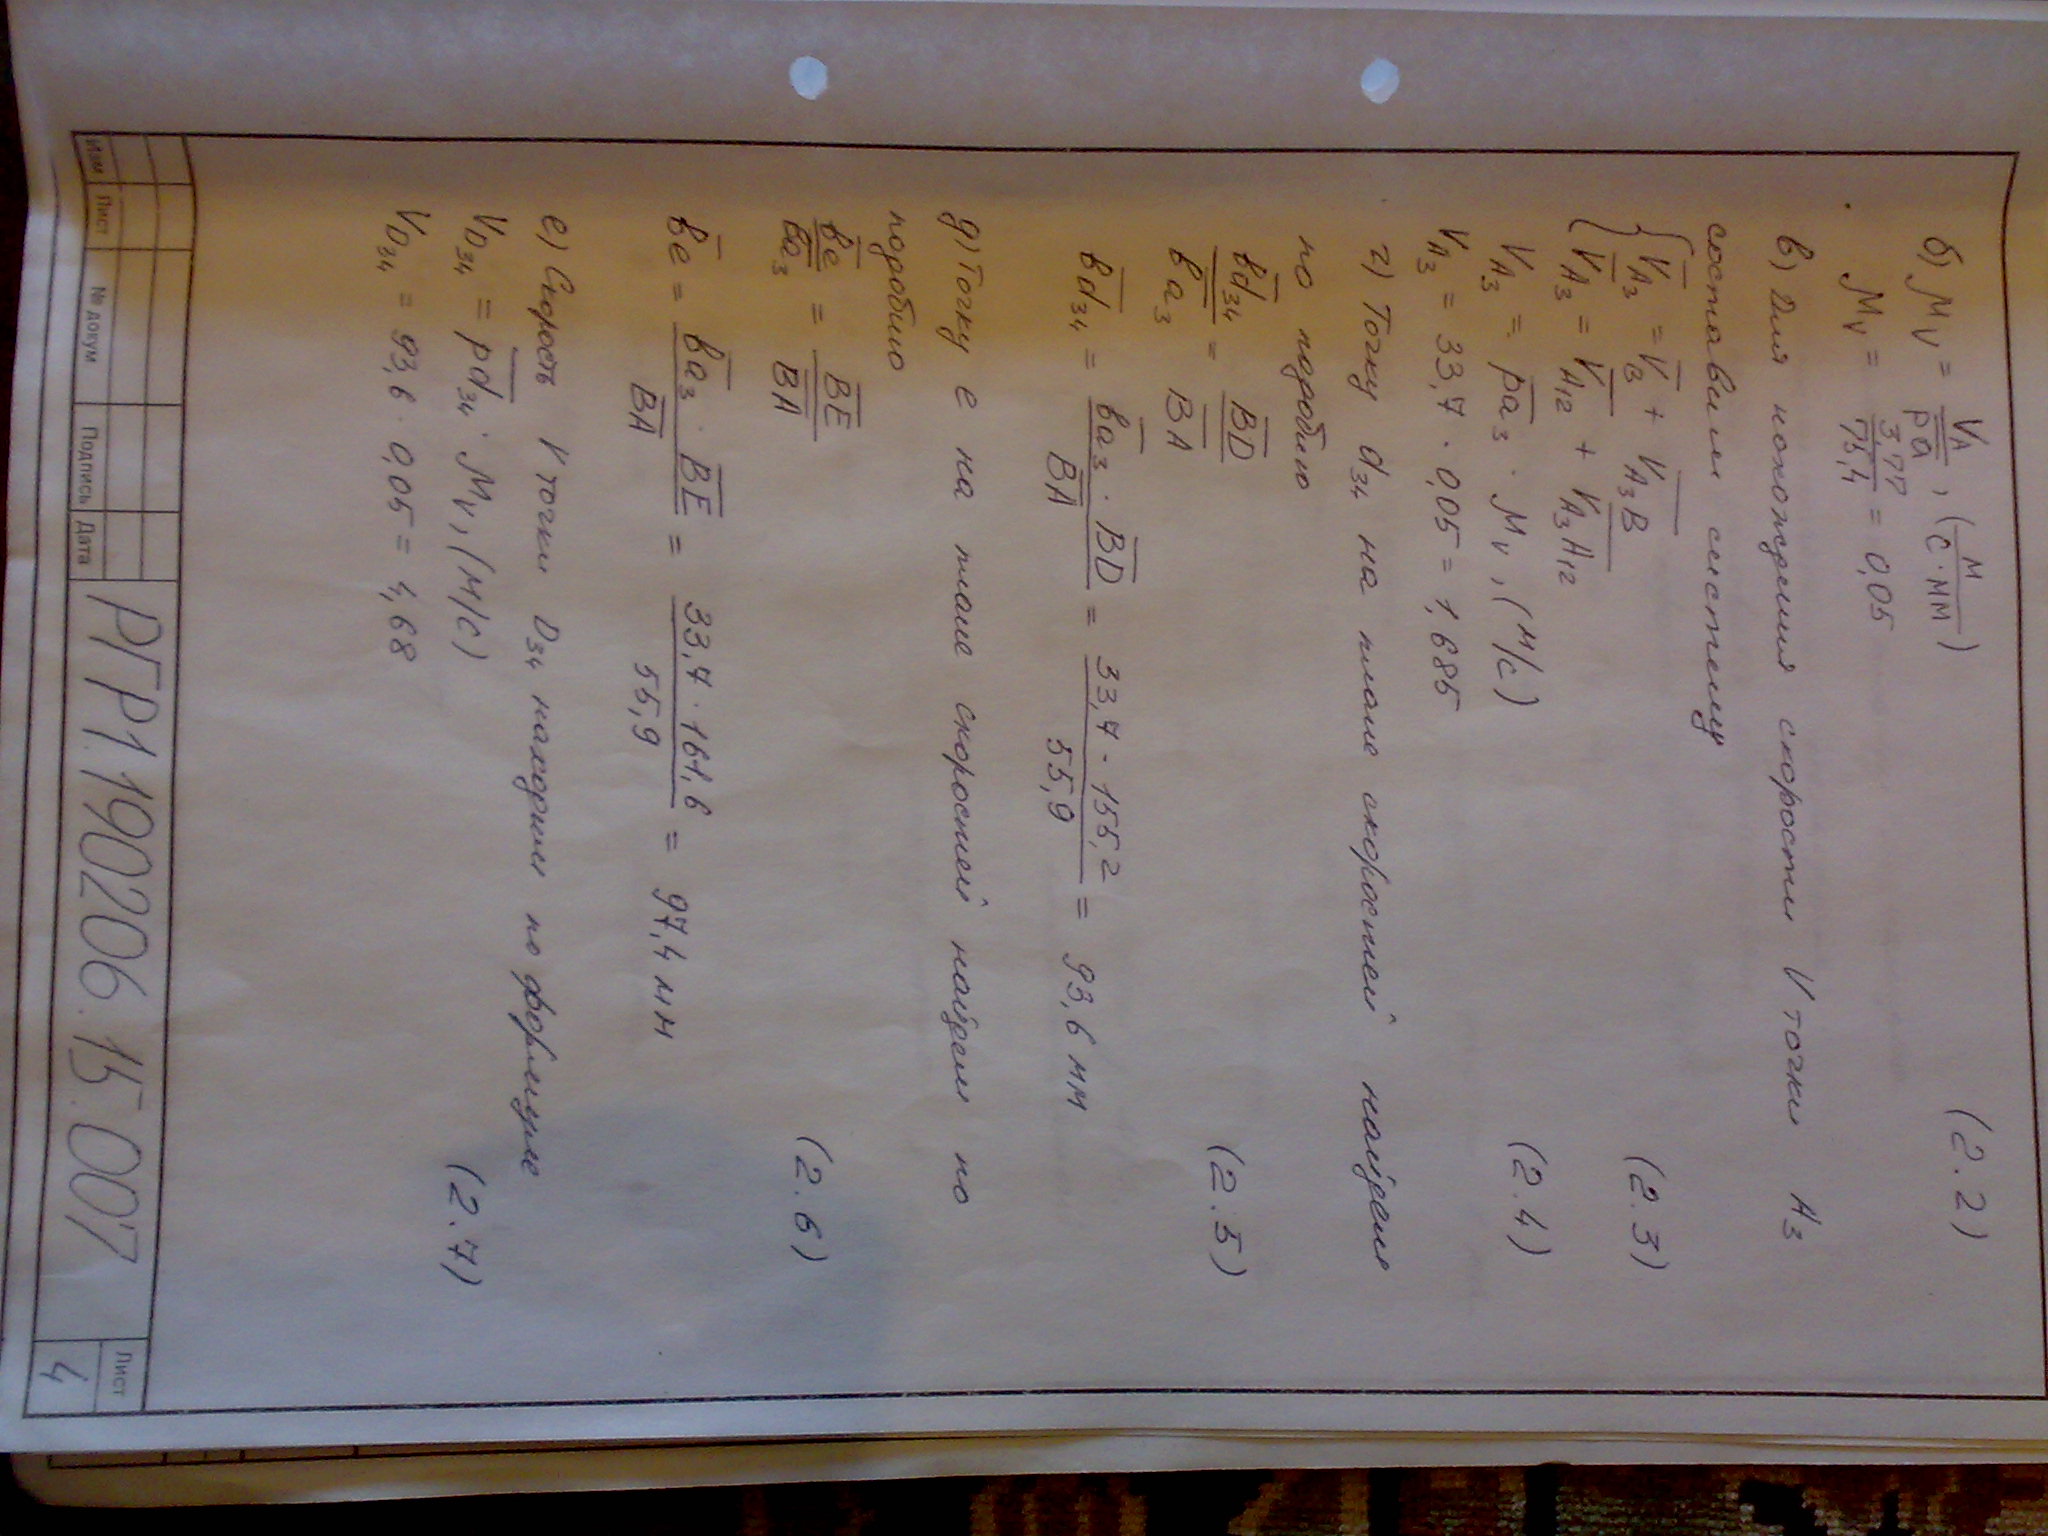 б) Mv = VA / pa, (м / с·мм) (2.2)
Mv = 3,77 / 75,4 = 0,05
в) Для нахождения скорости V точки A3
составим систему
{ V̅A3 = V̅B + V̅A3B (2.3)
{ V̅A3 = V̅A12 + V̅A3A12
VA3 = p̅a̅3 · Mv, (м/с) (2.4)
VA3 = 33,7 · 0,05 = 1,685
г) Точку d34 на плане скоростей найдем
по подобию
b̅d̅34 / b̅a̅3 = B̅D̅ / B̅A̅ (2.5)
b̅d̅34 = b̅a̅3 · B̅D̅ / B̅A̅ = 33,7 · 155,2 / 55,9 = 93,6 мм
д) Точку e на плане скоростей найдем по
подобию
b̅e̅ / b̅a̅3 = B̅E̅ / B̅A̅ (2.6)
b̅e̅ = b̅a̅3 · B̅E̅ / B̅A̅ = 33,7 · 161,6 / 55,9 = 97,4 мм
е) Скорость V точки D34 находим по формуле
VD34 = p̅d̅34 · Mv, (м/с) (2.7)
VD34 = 93,6 · 0,05 = 4,68
Изм Лист № докум. Подпись Дата
РГР1.190206.15.007
Лист
4